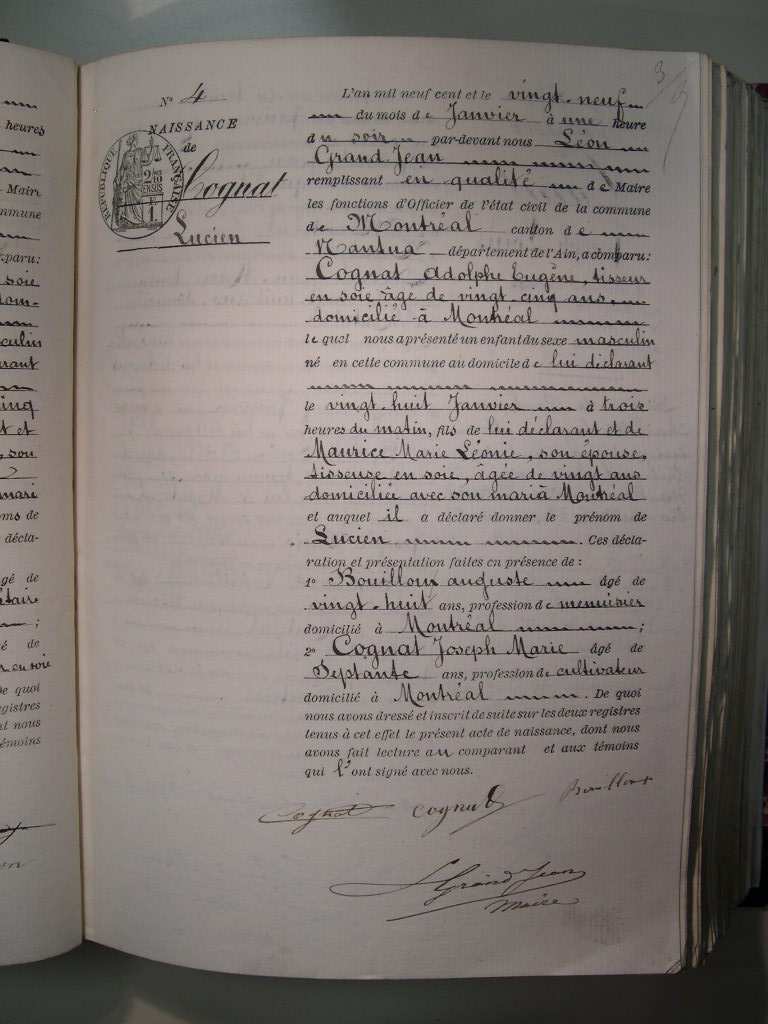 heures
Maire
commune
paru:
soie
dom-
masculin
déclarant
cinq
et et
, son
mari
oms de
décla-
gé de
;
é de
r en soie
De quoi
gistres
t nous
témoins
3
N° 4
NAISSANCE
de
RÉPUBLIQUE FRANÇAISE
Cognat
Lucien
L'an mil neuf cent et le vingt-neuf
du mois de Janvier à une heure
du soir par-devant nous Léon
Grand Jean
remplissant en qualité de Maire
les fonctions d'Officier de l'état civil de la commune
de Montréal canton de
Nantua département de l'Ain, a comparu:
Cognat Adolphe Eugène, tisseur
en soie âgé de vingt cinq ans,
domicilié à Montréal
lequel nous a présenté un enfant du sexe masculin
né en cette commune au domicile de lui déclarant
le vingt-huit Janvier à trois
heures du matin, fils de lui déclarant et de
Maurice Marie Léonie, son épouse,
tisseuse en soie, âgée de vingt ans
domiciliée avec son mari à Montréal
et auquel il a déclaré donner le prénom de
Lucien . Ces décla-
ration et présentation faites en présence de :
1° Bouilloux auguste âgé de
vingt-huit ans, profession de menuisier
domicilié à Montréal ;
2° Cognat Joseph Marie âgé de
Septante ans, profession de cultivateur
domicilié à Montréal . De quoi
nous avons dressé et inscrit de suite sur les deux registres
tenus à cet effet le présent acte de naissance, dont nous
avons fait lecture au comparant et aux témoins
qui l'ont signé avec nous.
Cognat Cognat Bouilloux
L Grand Jean
Maire